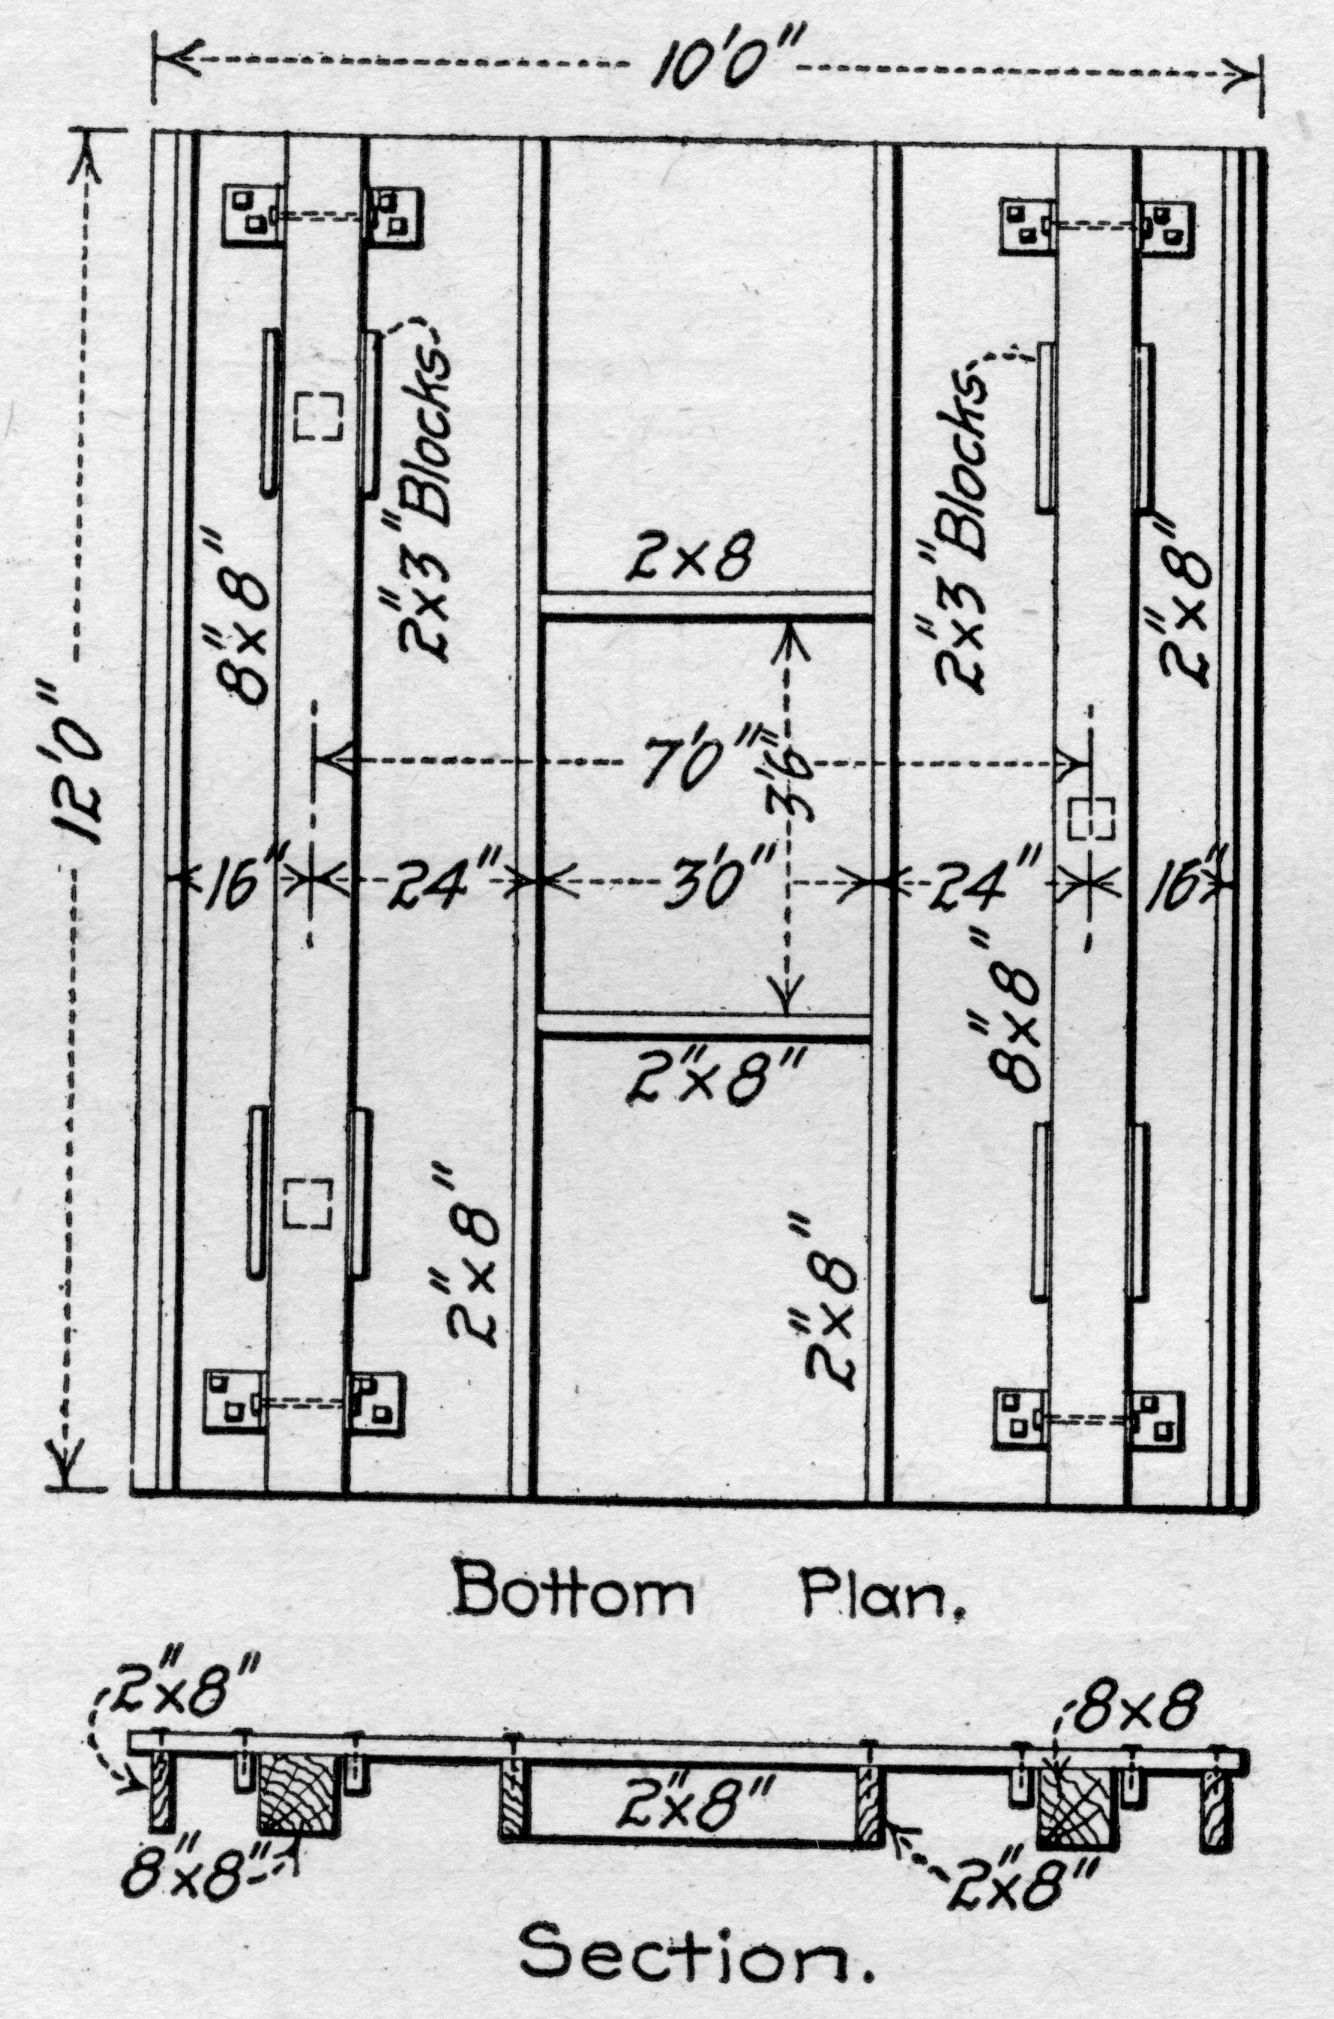 10'0"
12'0"
8"x8"
2"x3" Blocks
2x8
2"x3" Blocks
2"x8"
7'0"
3'6"
16"
24"
3'0"
24"
16"
8"x8"
2"x8"
2"x8"
2"x8"
Bottom Plan.
2"x8"
8x8
2"x8"
8"x8"
2"x8"
Section.